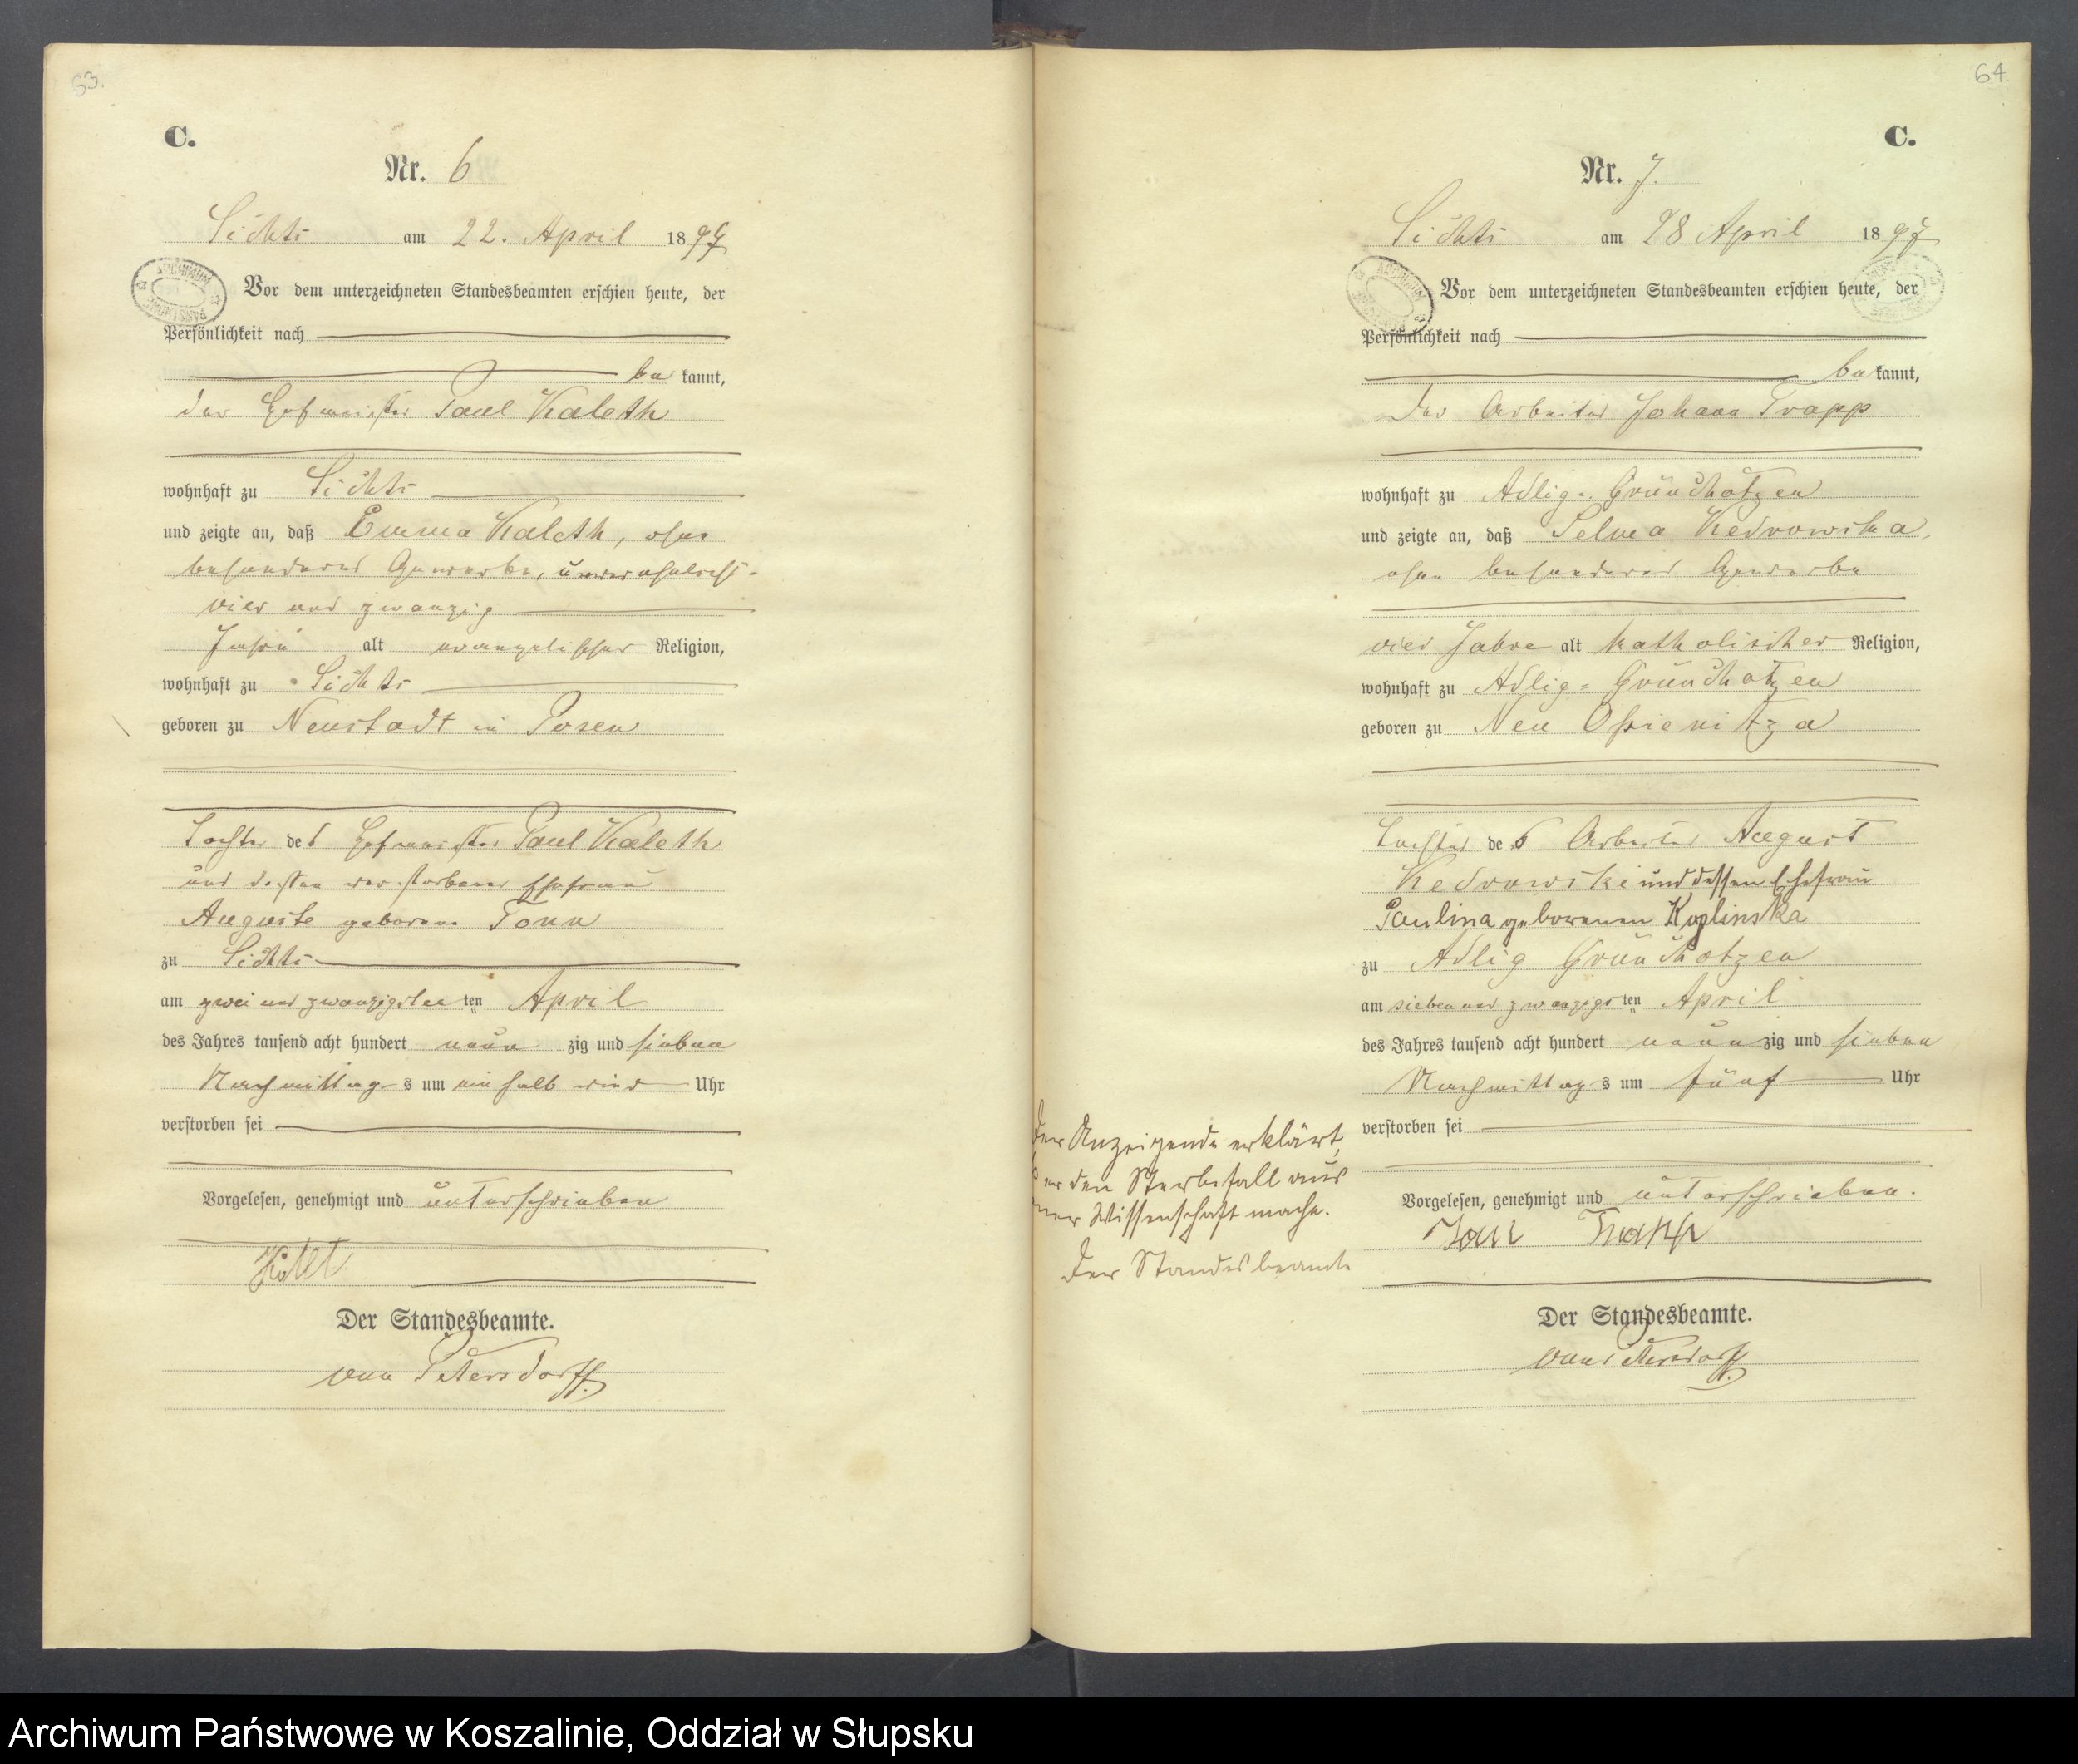 63.
C.
Nr. 6
Sichts am 22. April 1897
Vor dem unterzeichneten Standesbeamten erschien heute, der
Persönlichkeit nach
be kannt,
der Hofmeister Paul Kaleth
wohnhaft zu Sichts
und zeigte an, daß Emma Kaleth, ohne
besonderes Gewerbe, unverehelicht
vier und zwanzig
Jahre alt evangelischer Religion,
wohnhaft zu Sichts
geboren zu Neustadt in Posen
Tochter des Hofmeister Paul Kaleth
und dessen verstorbener Ehefrau
Auguste geborene Tonn
zu Sichts
am zwei und zwanzigsten ten April
des Jahres tausend acht hundert neun zig und sieben
Nachmittag s um ein halb vier Uhr
verstorben sei
Vorgelesen, genehmigt und unterschrieben
Der Standesbeamte.
von Petersdorff.
64.
C.
Nr. 7.
Sichts am 28 April 1897
Vor dem unterzeichneten Standesbeamten erschien heute, der
Persönlichkeit nach
be kannt,
der Arbeiter Johann Trapp
wohnhaft zu Adlig-Gründhotzen
und zeigte an, daß Selma Kedrowska,
ohne besonderes Gewerbe
vier Jahre alt katholischer Religion,
wohnhaft zu Adlig-Gründhotzen
geboren zu Neu
Tochter des Arbeiter August
Kedrowski und dessen Ehefrau
Paulina geborenen Koplinska
zu Adlig Gründhotzen
am sieben und zwanzigs ten April
des Jahres tausend acht hundert neun zig und sieben
Nachmittag s um fünf Uhr
verstorben sei
Der Anzeigende erklärt,
er den Sterbefall aus
ner Wissenschaft mache.
Der Standesbeamte
Vorgelesen, genehmigt und unterschrieben.
Trapp
Der Standesbeamte.
von Petersdorff.
Archiwum Państwowe w Koszalinie, Oddział w Słupsku